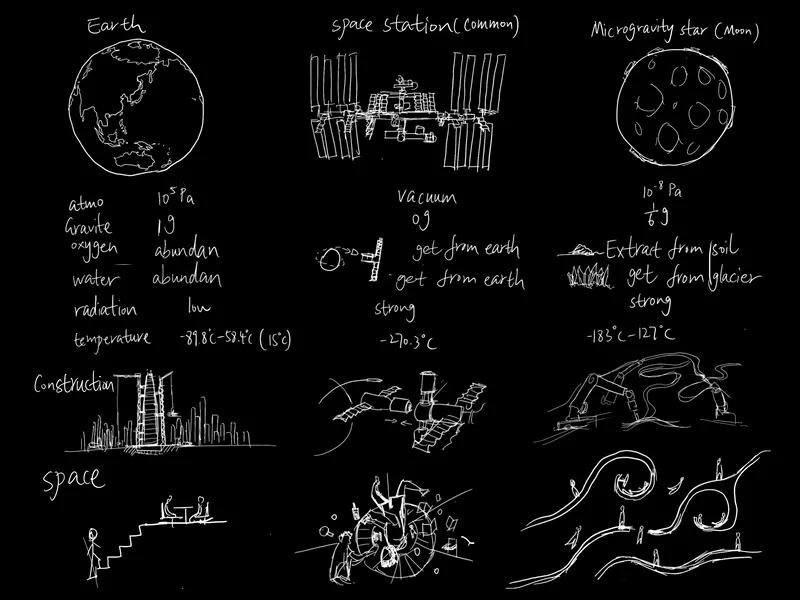 Earth space station(common) Microgravity star (Moon)
atmo 10⁵Pa vacuum 10⁻⁸Pa
Gravite 1g 0g 1/6g
oxygen abundan get from earth Extract from soil
water abundan get from earth get from glacier
radiation low strong strong
temperature -89.8°C-58.4°C (15°C) -270.3°C -183°C-127°C
Construction
space